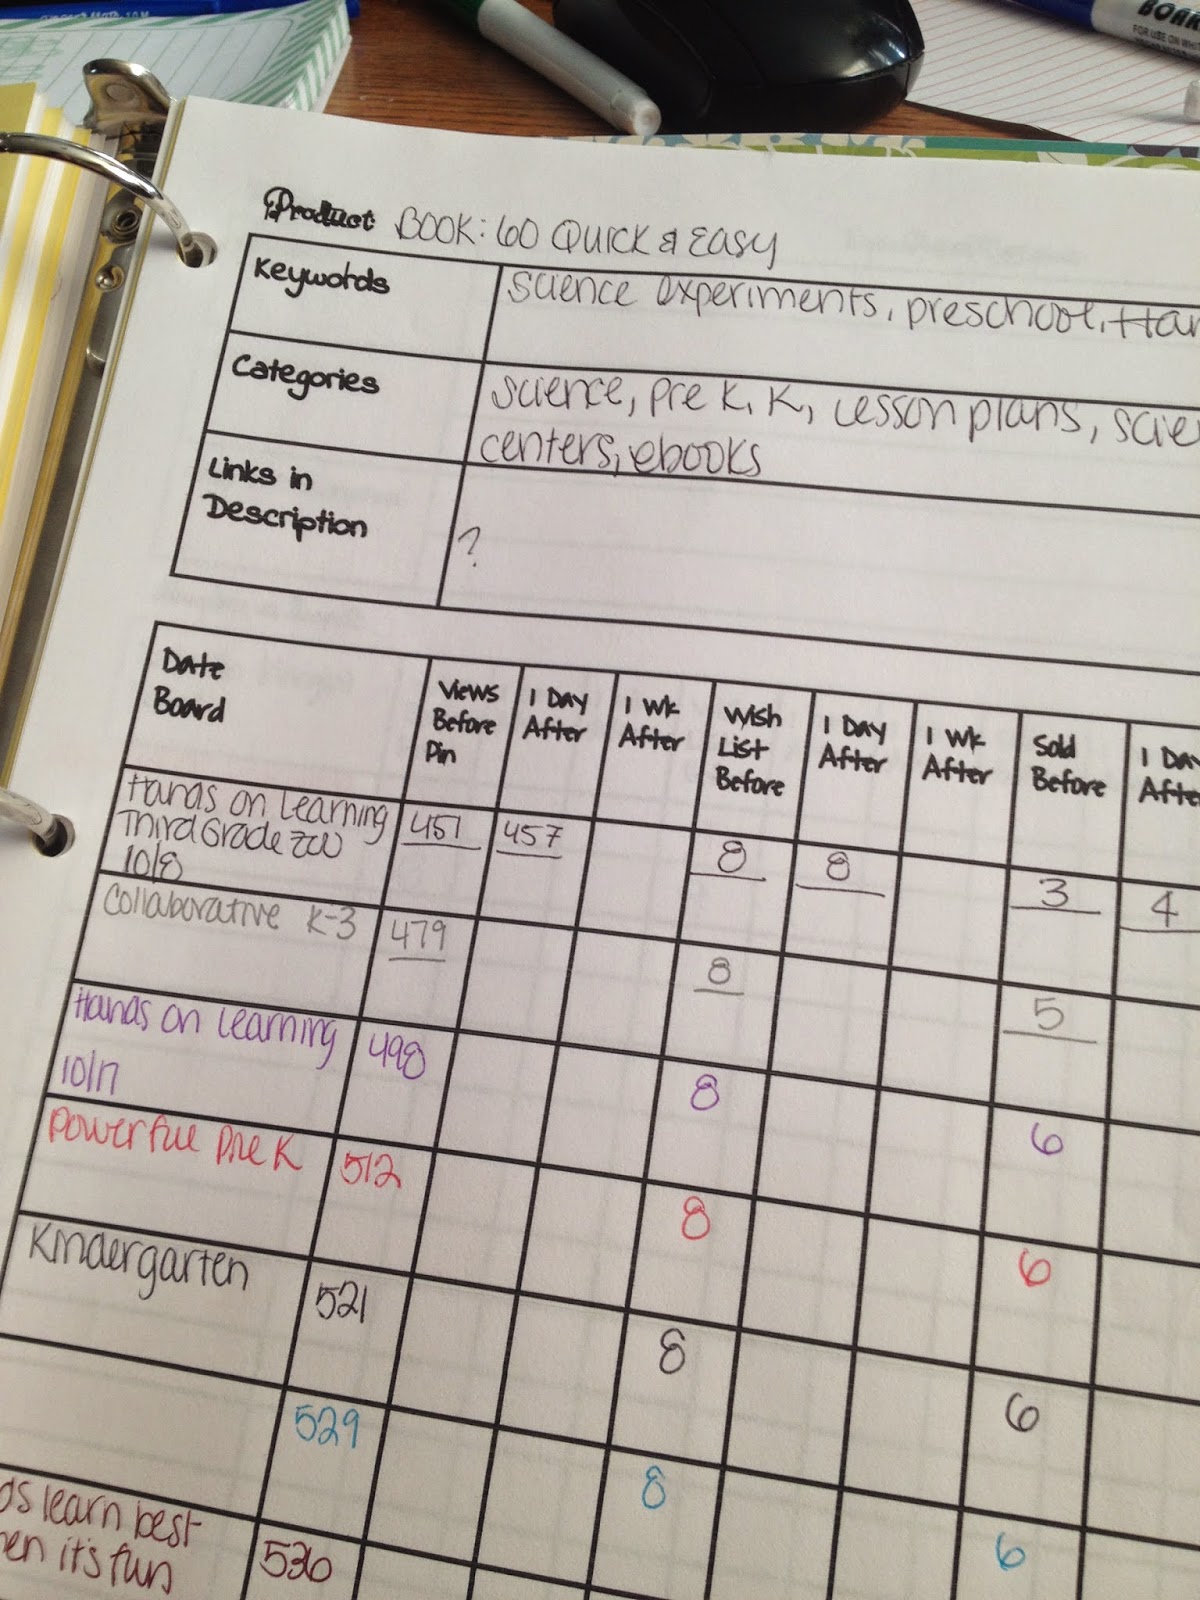 BOAR
FOR USE ON WH
Product: BOOK: 60 QUICK & EASY
Keywords science experiments, preschool, Han
Categories science, pre K, K, lesson plans, scie
centers, ebooks
Links in
Description ?
Date
Board
Views
Before
Pin
1 Day
After
1 Wk
After
Wish
List
Before
1 Day
After
1 Wk
After
Sold
Before
1 Day
After
Hands on Learning
Third Grade
10/8
451 457 8 8 3 4
Collaborative K-3 479 8 5
Hands on Learning
10/17
498 8 6
Powerful Pre K 512 8 6
Kindergarten 521 8 6
529 8 6
ds learn best
hen it's fun
536